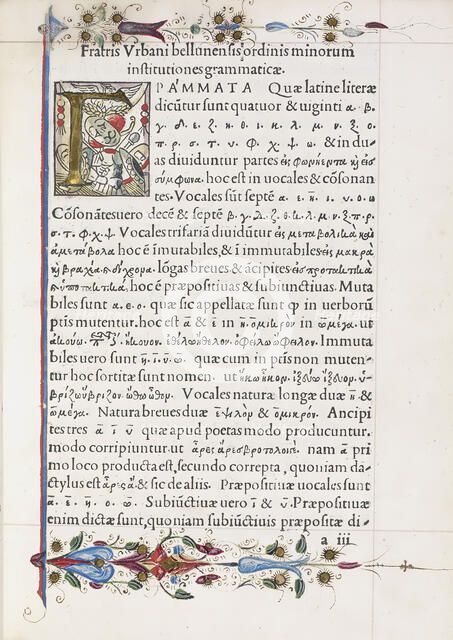 Fratris Vrbani bellunensis ordinis minorum
institutiones grammaticæ.
ΓPAMMATA Quæ latine literæ
dicūtur sunt quatuor & uiginti α. β.
γ. δ. ε. ζ. η. θ. ι. κ. λ. μ. ν. ξ. ο
π. ρ. σ. τ. υ. φ. χ. ψ. ω. & in du-
as diuiduntur partes εἰς φωνήεντα κỳ εἰς
σύμφωνα. hoc est in uocales & cōsonan
tes. Vocales sūt septē α. ε. η̄. ι. υ. ο ω
Cōsonātes uero decē & septē β. γ. δ. ζ. θ. κ. λ. μ. ν. ξ. π. ρ.
σ. τ. φ. χ. ψ. Vocales trifariā diuidūtur εἰς μεταβολικὰ κỳ
ἀμετάβολα hoc ē īmutabiles, & ī immutabiles εἰς μακρὰ
κỳ βραχέα κỳ δίχρονα. lōgas breues & ācipites εἰς προτακτικὰ
κỳ ὑποτακτικὰ, hoc ē præpositiuas & subiunctiuas. Muta
biles sunt α. ε. ο. quæ sic appellatæ sunt ꝙ in uerborū
ptīs mutentur. hoc est ᾱ & ε̄ in η̄. ὀμικρὸν in ω̄μέγα. ut
ἀκούω. ἤκουον. ἐθέλω ἤθελον. ὀφείλω ὤφειλον. Immuta
biles uero sunt η̄. ι. ῡ. ω̄. quæ cum in p̄tis non muten-
tur hoc sortitæ sunt nomen. ut ἥκω ἧκον. ἰξεύω ἴξευον. ὑ-
βρίζω ὕβριζον. ὤθω ὦθον. Vocales natura longæ duæ η̄. &
ω̄μέγα. Natura breues duæ ἐψιλὸν & ὀμικρόν. Ancipi
tes tres ᾱ ῑ ῡ quæ apud poetas modo producuntur.
modo corripiuntur. ut ἆρες ἄρες βροτολοιγέ. nam ᾱ pri
mo loco producta est, secundo correpta, quoniam da-
ctylus est ἆρες ἄ. & sic de aliis. Præpositiuæ uocales sunt
ᾱ. ε̄. η̄. ο. ω̄. Subiūctiuæ uero ῑ & ῡ. Præpositiuæ
enim dictæ sunt, quoniam subiūctiuis præpositæ di-
a iii